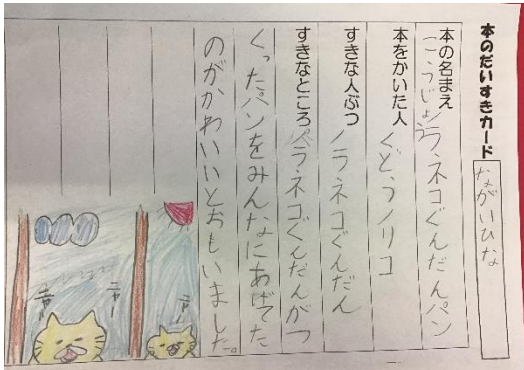 本のだいすきカード
ながいひな
本の名まえ ノラネコぐんだんパン
こうじょう
本をかいた人 くどうノリコ
すきな人ぶつ ノラネコぐんだん
すきなところ ノラネコぐんだんがつ
くったパンをみんなにあげてた
のがかわいいとおもいました。
ニャー
ニャー
ニャー